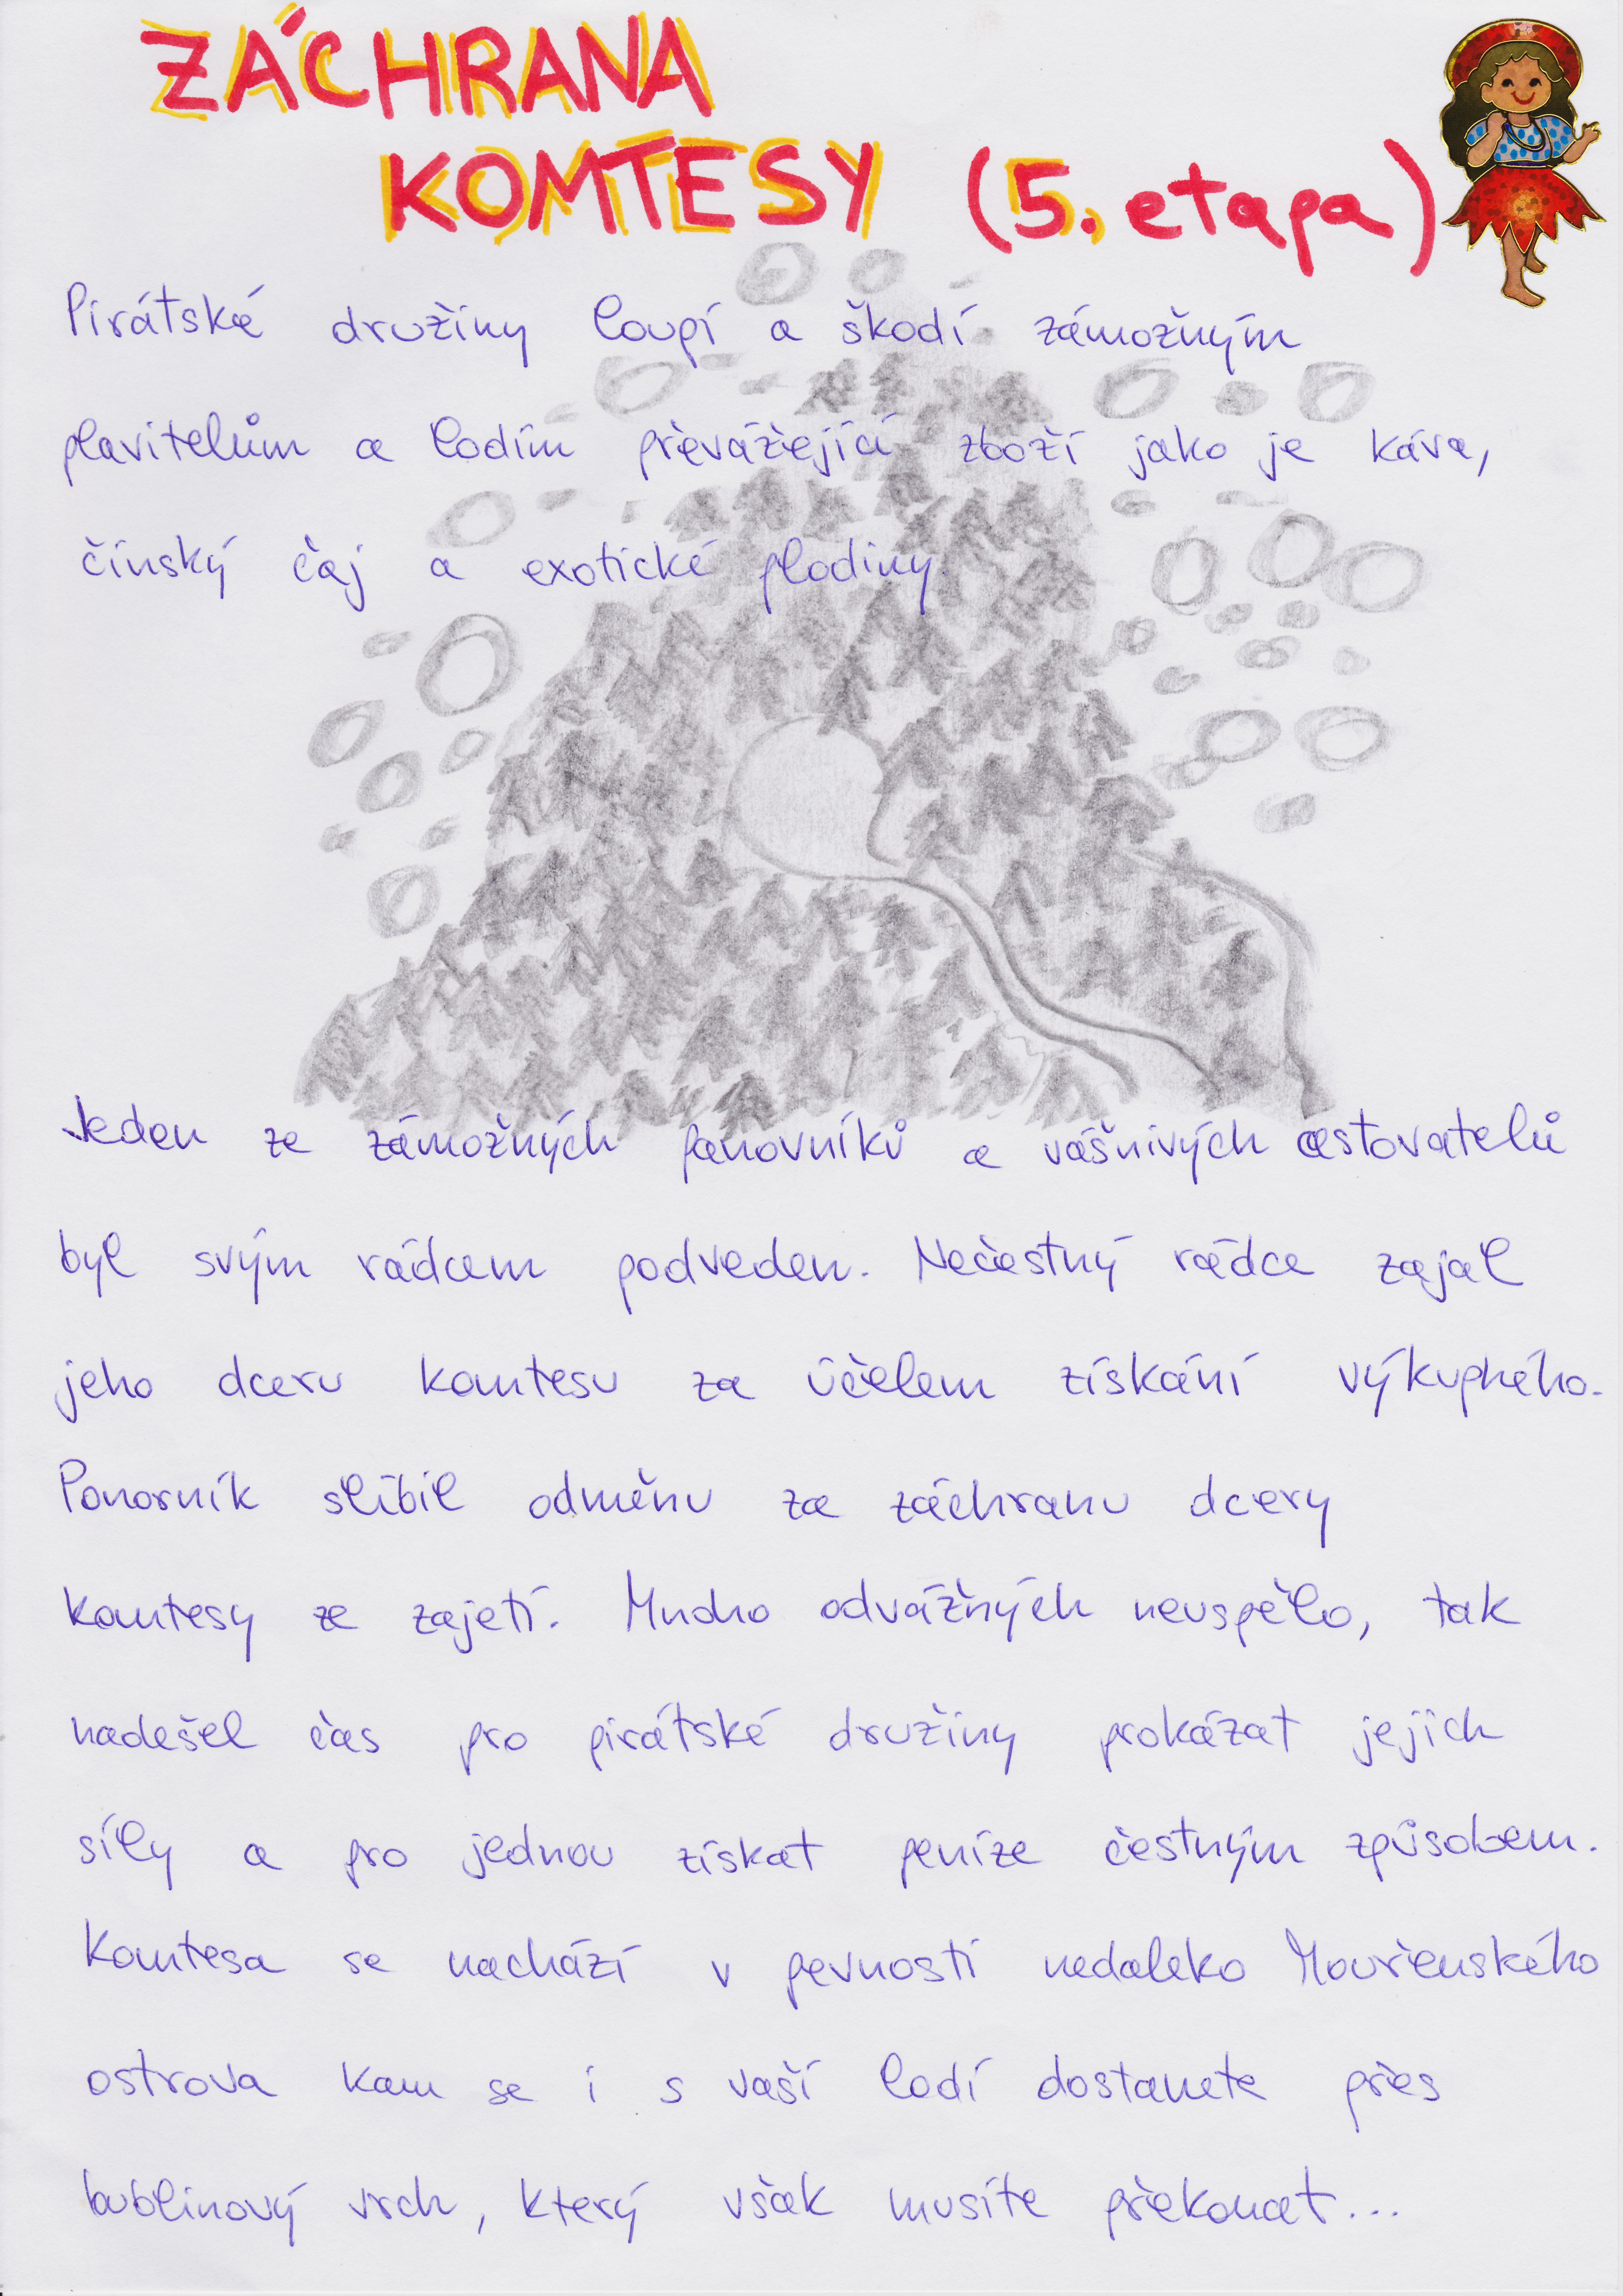 ZÁCHRANA
KOMTESY (5. etapa)
Pirátské družiny loupí a škodí zámožným
plavitelům a lodím převážející zboží jako je káva,
čínský čaj a exotické plodiny.
Jeden ze zámožných panovníků a vášnivých cestovatelů
byl svým rádcem podveden. Nečestný rádce zajal
jeho dceru komtesu za účelem získání výkupného.
Panovník slíbil odměnu za záchranu dcery
komtesy ze zajetí. Mnoho odvážných neuspělo, tak
nadešel čas pro pirátské družiny prokázat jejich
síly a pro jednou získat peníze čestným způsobem.
Komtesa se nachází v pevnosti nedaleko Mouřenského
ostrova kam se i s vaší lodí dostanete přes
bublinový vrch, který však musíte překonat...